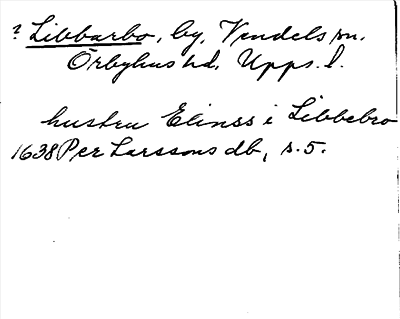 ? Libbarbo, by, Vendels sn.
Örbyhus hd. Upps. l.
hustru Elinss i Libbebro
1638 Per Larssons db, s. 5.